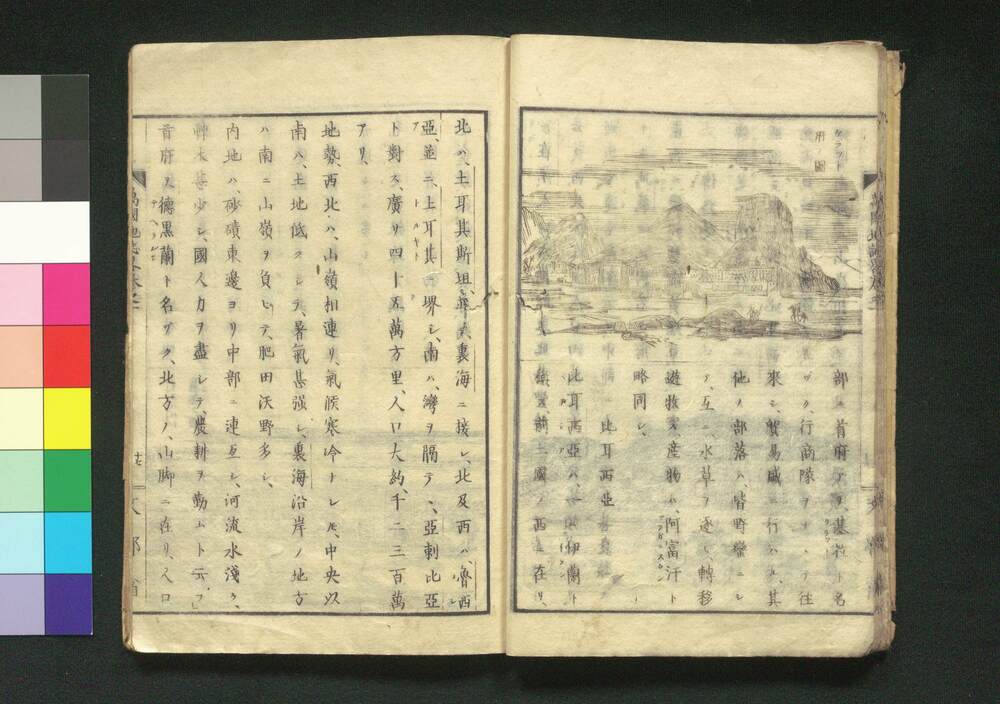 ケラット
府圖
部ノ首府アリ、基拉ト名
ヅク、行商隊ヲナシテ往
來シ、貿易盛ニ行ハル、其
他ノ部落ハ、皆野蠻ニシ
テ、互ニ水草ヲ逐ヒ、轉移
遊牧ス、産物ハ、阿富汗ト
略同シ、
比耳西亞
比耳西亞ハ、伊蘭ト
前二國ノ西ニ在リ、
北ハ、土耳其斯坦、并ニ裏海ニ接シ、北及西ハ、魯西
亞、並ニ土耳其ニ堺シ、南ハ、灣ヲ隔テ、亞剌比亞
ト對ス、廣サ四十五萬方里、人口大約、千二三百萬
アリ、
地勢、西北ハ、山嶺相連リ、氣候寒冷トレ𪜈、中央以
南ハ、土地低クシテ、暑氣甚強シ、裏海沿岸ノ地方
ハ南ニ山嶺ヲ負ヒテ、肥田沃野多シ、
内地ハ、砂磧東邊ヨリ中部ニ連亙シ、河流水淺ク、
艸木甚少シ、國人力ヲ盡シテ、農耕ヲ勤ムト云フ、
首府ヲ德黑蘭ト名ヅク、北方ノ、山脚ニ在リ、人口
萬國地誌
文部省